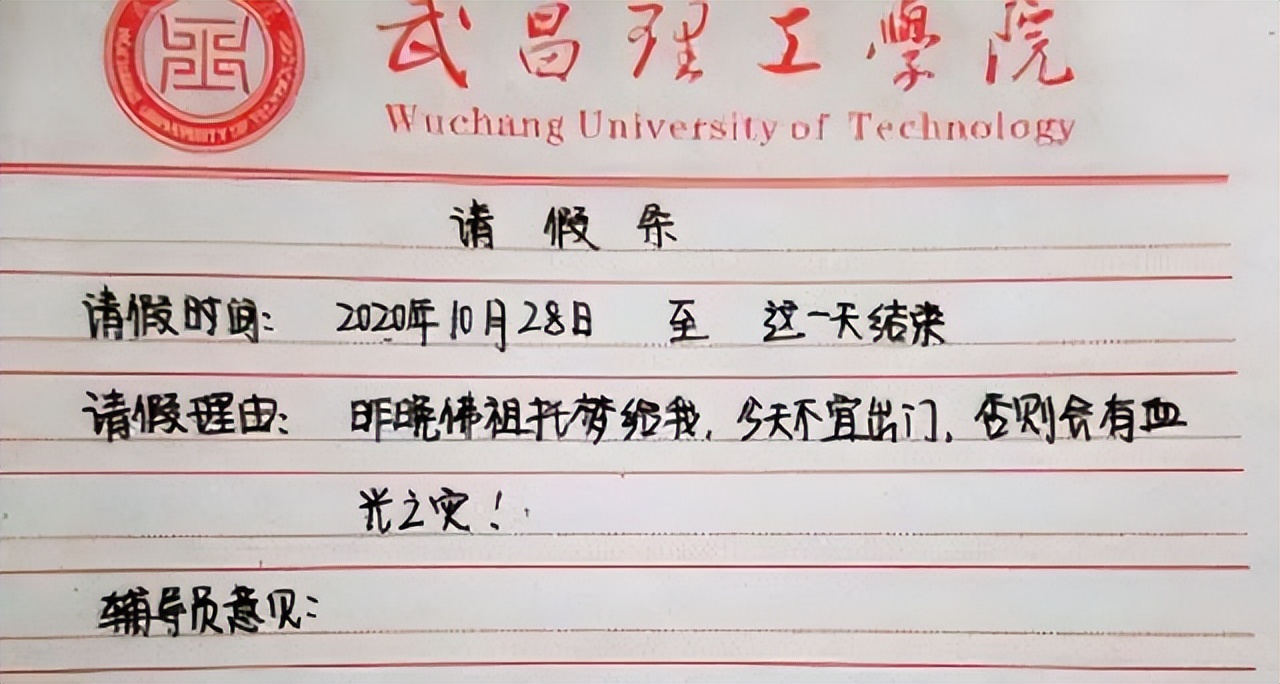 武昌理工學院
Wuchang University of Technology
请假条
请假时间： 2020年10月28日 至 这一天结束
请假理由： 昨晚佛祖托梦给我，今天不宜出门，否则会有血
光之灾！
辅导员意见：